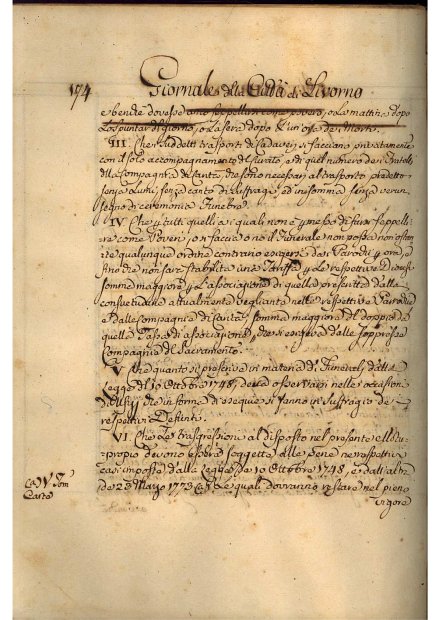 174 Giornale della Città di Livorno
e benchè dovesse
lo spuntar di giorno, o la sera dopo un'ora de' Morti.
III. Che i suddetti trasporti di Cadaveri si facciano privatamente
con il solo accompagnamento del Curato, e di quel numero de' Fratelli
della Compagnia di Carità, che sono necessari al trasporto predetto
senza Lumi, senza canto di Suffragi, ed insomma senza verun
segno di ceremonia Funebre.
IV. Che per tutti quelli a i quali non è permesso di farsi seppelli-
re come Poveri, o si faccia o no il Funerale non possa non ostan-
te qualunque ordine contrario esigersi da i Parochi per ora, e
fino che non sarà stabilita una Tariffa per le respettive Diocesi
somma maggiore per l'associazione di quella prescritta dalla
consuetudine attualmente vegliante nelle respettive Parrochie
e dalle Compagnie di Carità somma maggiore del doppio di
quella Tassa di associazione, che si esigeva dalle soppresse
Compagnie del Sacramento.
V. Che quanto si prescrive in materia di Funerali dalla
Legge del 10 Ottobre 1748, debba osservarsi nelle occasioni
di Uffizj che in forma di esequie si fanno in suffragio de'
respettivi Defunti.
VI. Che le trasgressioni al disposto nel presente Motu-
proprio devono essere soggette alle Pene ne respettivi
casi imposte dalla Legge de 10 Ottobre 1748, e dall'altra
de 23 Marzo 1773 le quali dovranno restare nel pieno
vigore